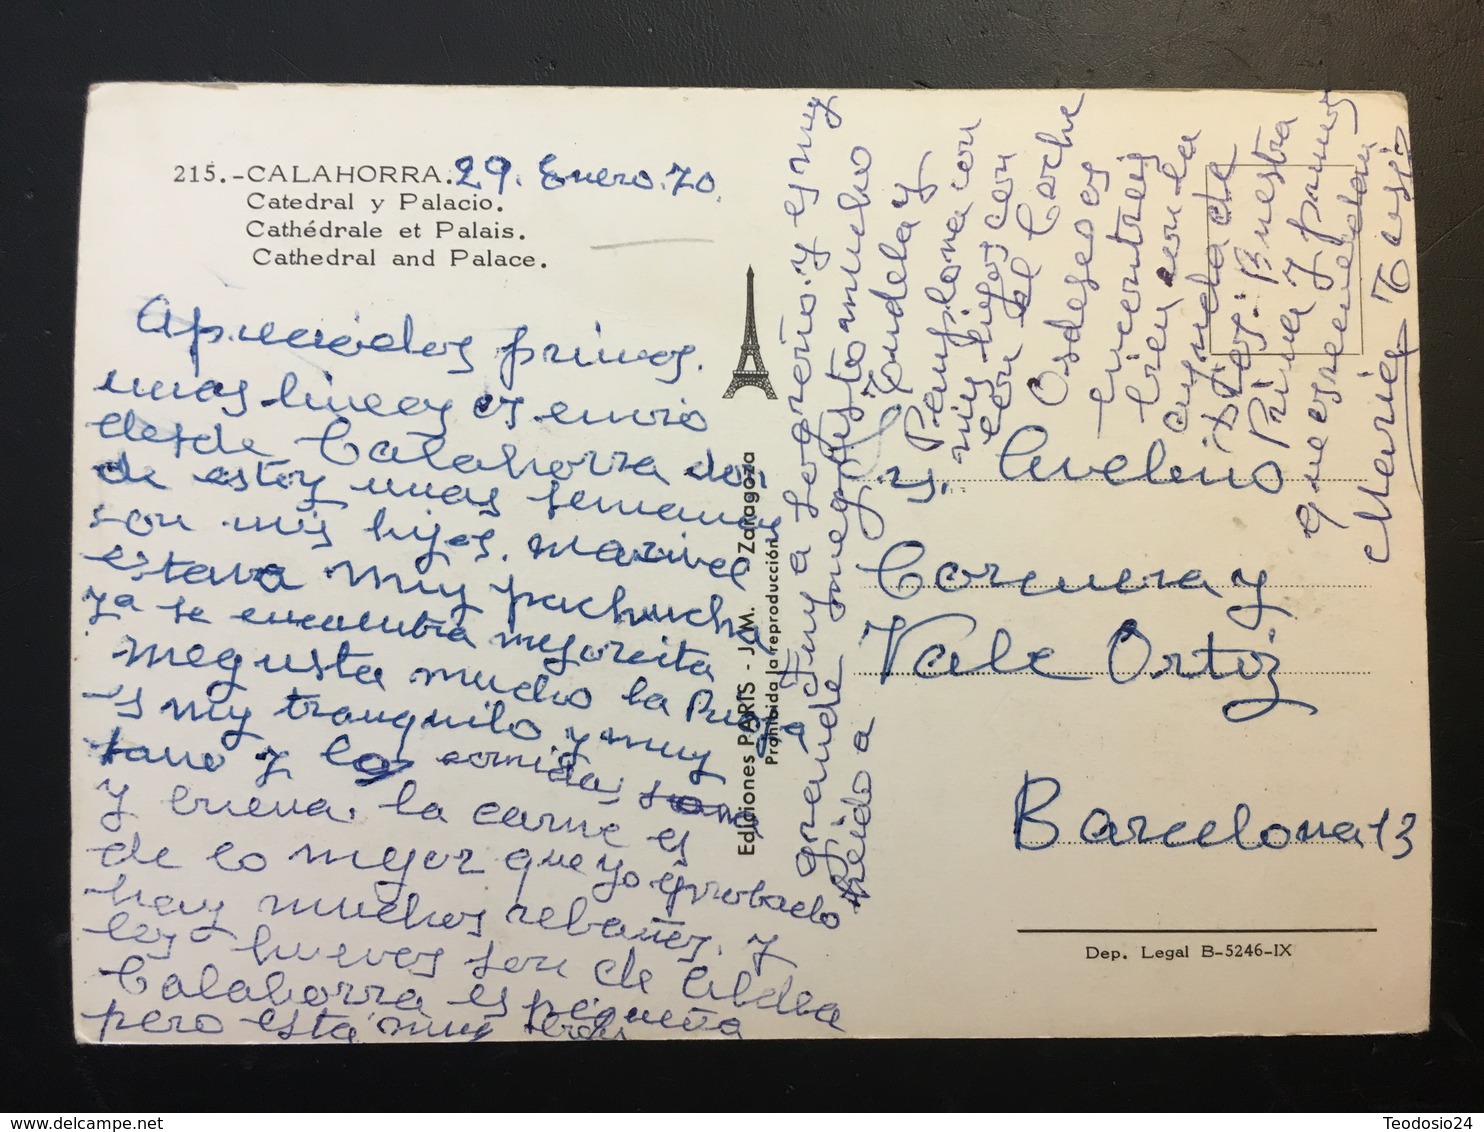 215.-CALAHORRA. 29. Enero. 70.
Catedral y Palacio.
Cathédrale et Palais.
Cathedral and Palace.
Apreciados primos.
unas lineas os envio
desde Calahorra don
de estoy unas semanas
con mis hijos. Marivel
estava muy pachucha
ya se encuentra mejorcita
me gusta mucho la
es muy tranquilo y muy
sano y las comidas sana
y buena. la carne es
de lo mejor que yo e probado
hay muchos rebaños. y
los huevos son de aldea
Calahorra es pequeña
pero esta muy
Ediciones PARIS - J.M. Zaragoza
Prohibida la reproducción
grande fuy a Logroño. y es muy
me gusto mucho
he ido a Tudela y
Pamplona con
mis hijos con
con el coche
Os deseo os
encontreis
bien con la
ayuda de
Dios. Buestra
Prima y primos
que os recuerdan
Maria
y. Avelino
Cornera y
Vale Ortiz
Barcelona 13
Dep. Legal B-5246-IX
Teodosio24